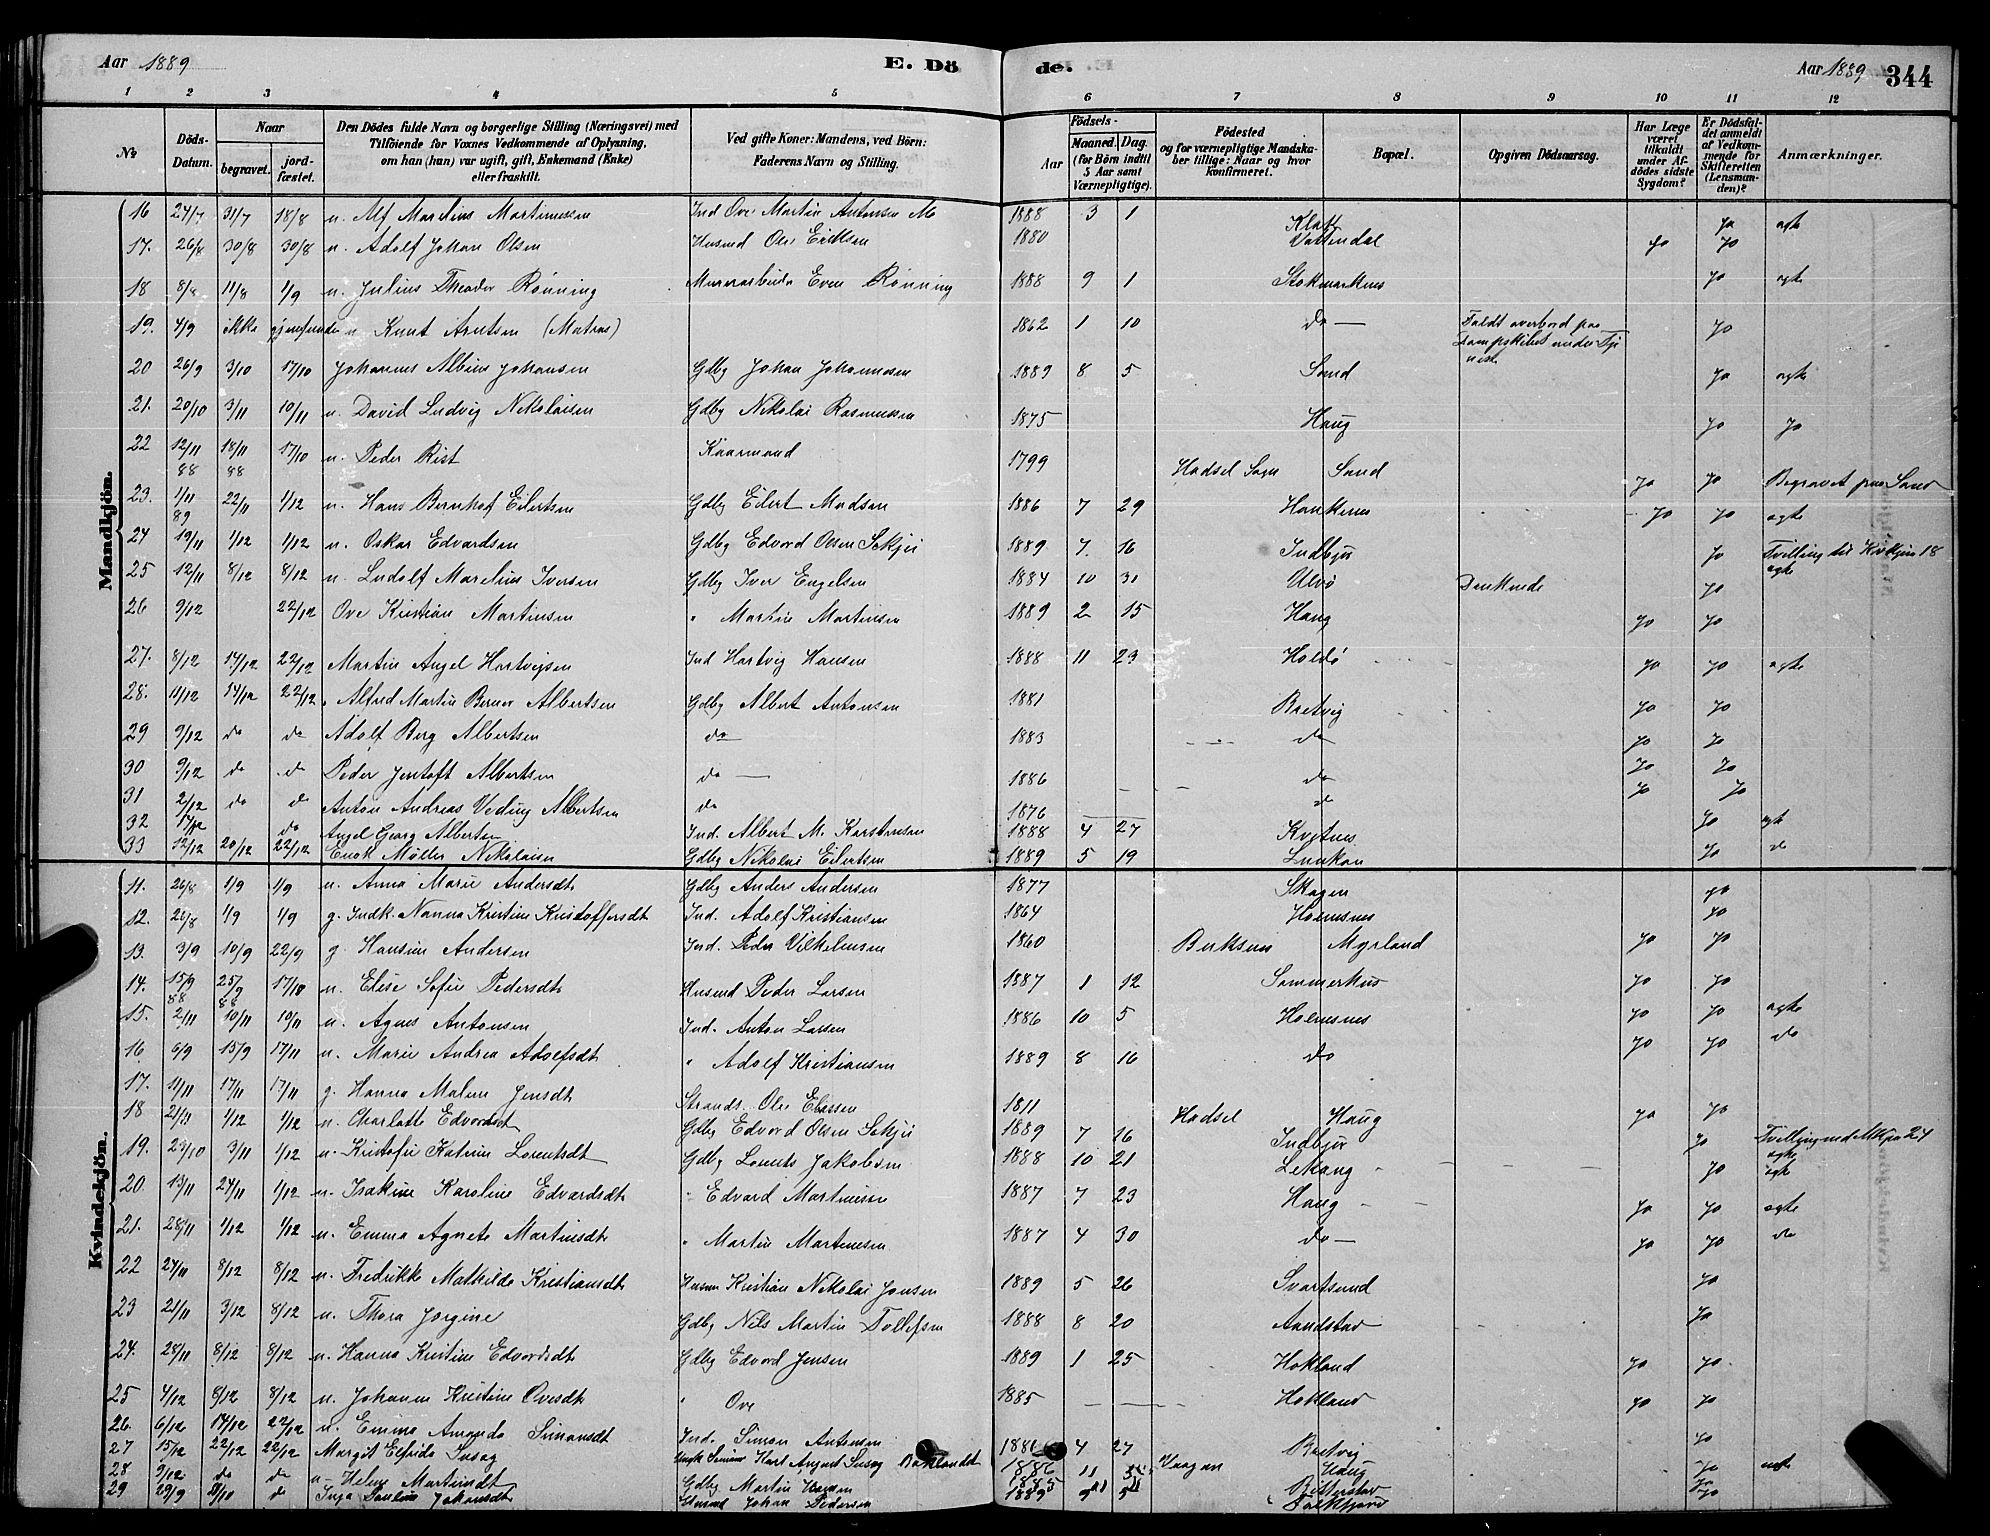 Aar 1889 E. Dö de. Aar 1889 344
1 2 3 4 5 6 7 8 9 10 11 12
No Döds-Datum. Naar begravet. jord-fæstet. Den Dödes fulde Navn og borgerlige Stilling (Næringsvei) med Tilföiende for Voxnes Vedkommende af Oplysning, om han (hun) var ugift, gift, Enkemand (Enke) eller fraskilt. Ved gifte Koner: Mandens, ved Börn: Faderens Navn og Stilling. Födsels- Aar Maaned. Dag. (for Börn indtil 5 Aar samt Værnepligtige). Födested og for værnepligtige Mandskaber tillige: Naar og hvor konfirmeret. Bopæl. Opgiven Dödsaarsag. Har Læge været tilkaldt under Afdödes sidste Sygdom? Er Dödsfaldet anmeldt af Vedkommende for Skifteretten (Lensmanden)? Anmærkninger.
Mandkjön.
16 24/7 31/7 18/8 u. Alf Marelius Martinussen Ind Ove Martin Antonsen 1888 3 1 Klatt Ja agte
17. 26/8 30/8 30/8 u. Adolf Johan Olsen Husmd Ole Eriksen 1880 Vattendal Ja Ja
18 8/8 11/8 1/9 u. Julius Theodor Rönning Murarbeider Even Rönning 1888 9 1 Stokmarknes Ja agte
19. 4/9 ikke gjenfunden u Knut Arntsen (Matros) 1862 1 10 do — Faldt overbord paa Dampskibet under Tjeneste Ja
20 26/9 3/10 17/10 Johannes Albins Johansen Gdbg Johan Johannesen 1889 8 5 Sand Ja agte
21. 20/10 3/11 10/11 u. David Ludvig Nikolaisen Gdbg Nikolai Rasmussen 1875 Haug Ja Ja
22 12/11 88 18/11 88 17/10 u. Peder Rist Kaarmand 1799 Hadsel Sogn Sand Ja Ja Begravet paa Sand
23. 1/11 89 22/11 1/12 u. Hans Bernhof Eilertsen Gdbg Eilert Madsen 1886 7 29 Haukenes Ja Ja agte
24 19/11 1/12 1/12 u. Oskar Edvardsen Gdbg Edvard Olsen 1889 7. 16 Indbjör Ja Tvilling til Kvkjön 18 agte
25 12/11 8/12 8/12 u. Ludolf Marelius Iversen Gdbg Iver Engelsen 1884 10 31 Ulvö Druknede Ja
26 9/12 22/12 Ove Kristian Martinsen " Martin Martinsen 1889 2 15 Haug Ja Ja
27. 8/12 14/12 22/12 Martin Angel Hartvigsen Ind Hartvig Hansen 1888 11 23 Holdö Ja Ja agte
28. 11/12 14/12 22/12 Alfred Martin Berner Albertsen Gdbg Albert Antonsen 1881 Breivig Ja Ja
29 9/12 do do Adolf Berg Albertsen do 1883 do Ja Ja
30 9/12 do do Peder Jentoft Albertsen do — 1886 do Ja Ja
31 2/12 do do Anton Andreas Albertsen do 1876 do Ja Ja
32 14/12 do Angel Georg Albertsen Ind. Albert M. Karstensen 1888 4 27 Kvitnes Ja agte
33 12/12 20/12 22/12 Enok Möller Nikolaisen Gdbg Nikolai Eilertsen 1889 5 19 Lunkan Ja do
Kvindekjön.
11. 26/8 1/9 1/9 u. Anna Marie Andersdt Gdbg Anders Andersen 1877 Skagen Ja
12. 21/8 1/9 1/9 g. Indk. Nanna Kristine Kristoffersdt Ind. Adolf Kristiansen 1864 Holmsnes Ja
13. 3/9 10/9 22/9 g. Hansine Andersen Ind. Peder Vilhelmsen 1860 Myrland Ja Ja
14. 15/9 88 25/9 88 17/10 u. Elise Sofie Pedersdt Husmd Peder Larsen 1887 1 12 Sommerhus Ja Ja
15. 2/11 10/11 10/11 u. Agnes Antonsen Ind. Anton Larsen 1886 10 5 Holmsnes Ja Ja agte
16 6/9 15/9 17/11 u. Marie Andrea Adolfsdt " Adolf Kristiansen 1889 8 16 do Ja Ja do
17. 11/11 17/11 17/11 g. Hanna Malene Jensdt Strands. Ole Eliassen 1811 Hadsel Haug Ja Ja
18 21/11 1/12 1/12 u. Charlotte Edvardsdt Gdbg Edvard Olsen 1889 7 16 Indbjör Ja Tvilling med Mkjøn 24 agte
19. 23/10 3/11 1/12 u. Kristofie Katrine Lorentsdt Gdbg Lorents Jakobsen 1888 10 21 Lekang Ja agte
20 13/11 24/11 1/12 u. Isakine Karoline Edvardsdt " Edvard Martinussen 1887 7 23 Haug Ja Ja agte
21. 28/11 1/12 1/12 u. Emma Agnete Martinsdt " Martin Martinsen 1887 4 30 do — Ja Ja do
22 24/11 8/12 8/12 u. Fredrikke Mathilde Kristiansdt Husm Kristian Nikolai Jensen 1889 5 26 Svartsund Ja
23 21/11 3/12 8/12 u. Thora Jørgine Gdbg Nils Martin Tollefsen 1888 8 20 Aandstad Ja
24. 28/11 8/12 8/12 u. Hanna Kristine Edvardsdt Gdbg Edvard Jensen 1889 1 25 Hokland Ja Ja
25 4/12 8/12 8/12 u. Johanne Kristine Ovesdt " Ove 1885 Hokland Ja Ja
26. 6/12 14/12 22/12 u. Emma Amanda Simonsdt Ind. Simon Antonsen 1886 4 27 Breivig Ja
27 15/12 22/12 22/12 Margit Elfrida Karl August 1886 11 Vaagan Haug Ja agte
28 9/12 do do u. Helene Martinsdt Gdbg Martin Hansen 1885 Bitterstad Ja
29 29/9 do Inga Pauline Johansdt Husmd Johan Pedersen 1889 Falkfjord Ja